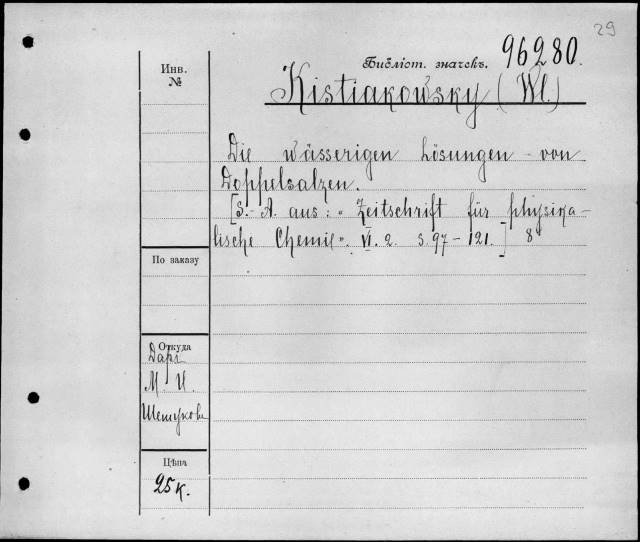 29
Библіот. значекъ. 96280.
Инв.
№
Kistiakowsky (Wl.)
Die wässerigen Lösungen von
Doppelsalzen.
[S.-A. aus: "Zeitschrift für physika-
lische Chemie". VI. 2. S. 97-121.] 8
По заказу
Откуда
Даръ
М. И.
Цѣна
25 к.